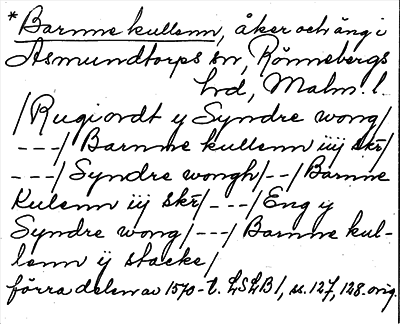 *Barnne kullenn, åker och äng i
Asmundtorps sn, Rönnebergs
hd, Malm. l.
/Rugiordt y Syndre wong/
---/ Barnne kullenn iiij skr/
---/Syndre wongh/--/Barnne
Kulenn iij skr/---/Eng y
Syndre wong/---/Barnne kul-
lenn ij stacke/
förra delen av 1570-t. LSLB 1, s. 127, 128. orig.